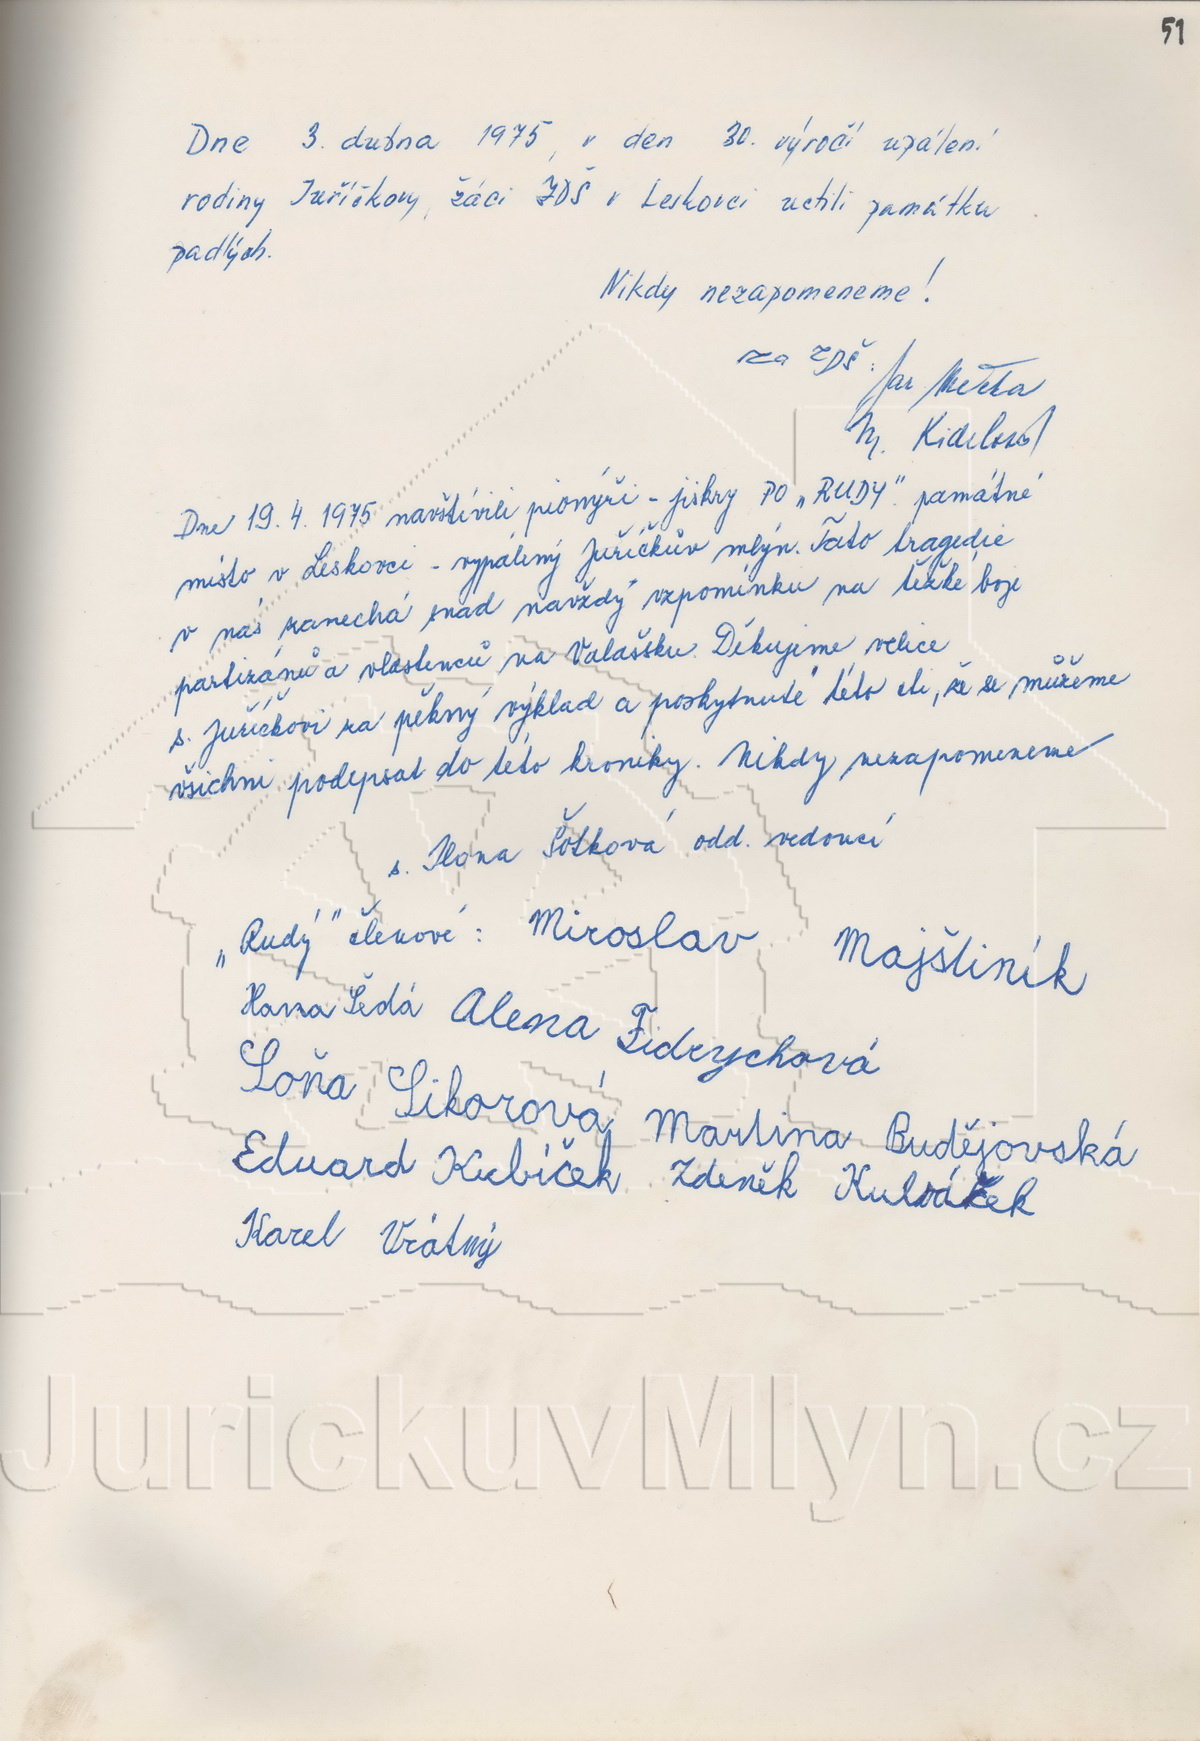 51
Dne 3. dubna 1975, v den 30. výročí upálení
rodiny Juříčkovy, žáci ZDŠ v Leskovci uctili památku
padlých.
Nikdy nezapomeneme!
za ZDŠ: Jar
Dne 19. 4. 1975 navštívili pionýři - jiskry PO „RUDY" památné
místo v Leskovci - vypálený Juříčkův mlýn. Tato tragedie
v nás zanechá snad navždy vzpomínku na těžké boje
partizánů a vlastenců na Valašsku. Děkujeme velice
s. Juříčkovi za pěkný výklad a poskytnuté této cti, že se můžeme
všichni podepsat do této kroniky. Nikdy nezapomeneme
s. Ilona Šotková odd. vedoucí
„Rudý" členové: Miroslav Majštiník
Hana Šedá Alena Fidrychová
Soňa Sikorová Martina Budějovská
Eduard Kubíček Zdeněk
Karel Vrátný
JurickuvMlyn.cz